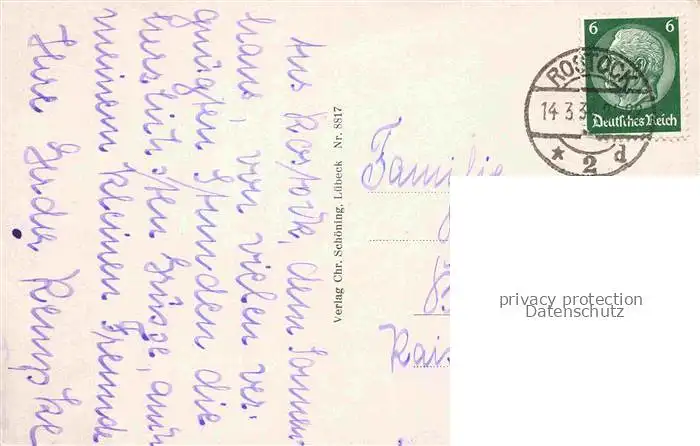 Aus Rostock, dem Sonnen-
haus, von vielen ver-
gnügten Stunden die
herzlichsten Grüsse, auch
meinem kleinen Freunde
Ihre
Verlag Chr. Schöning, Lübeck Nr. 8817
6 6
Deutsches Reich
ROSTOCK
14.3.3
* 2 d
Familie
privacy protection
Datenschutz